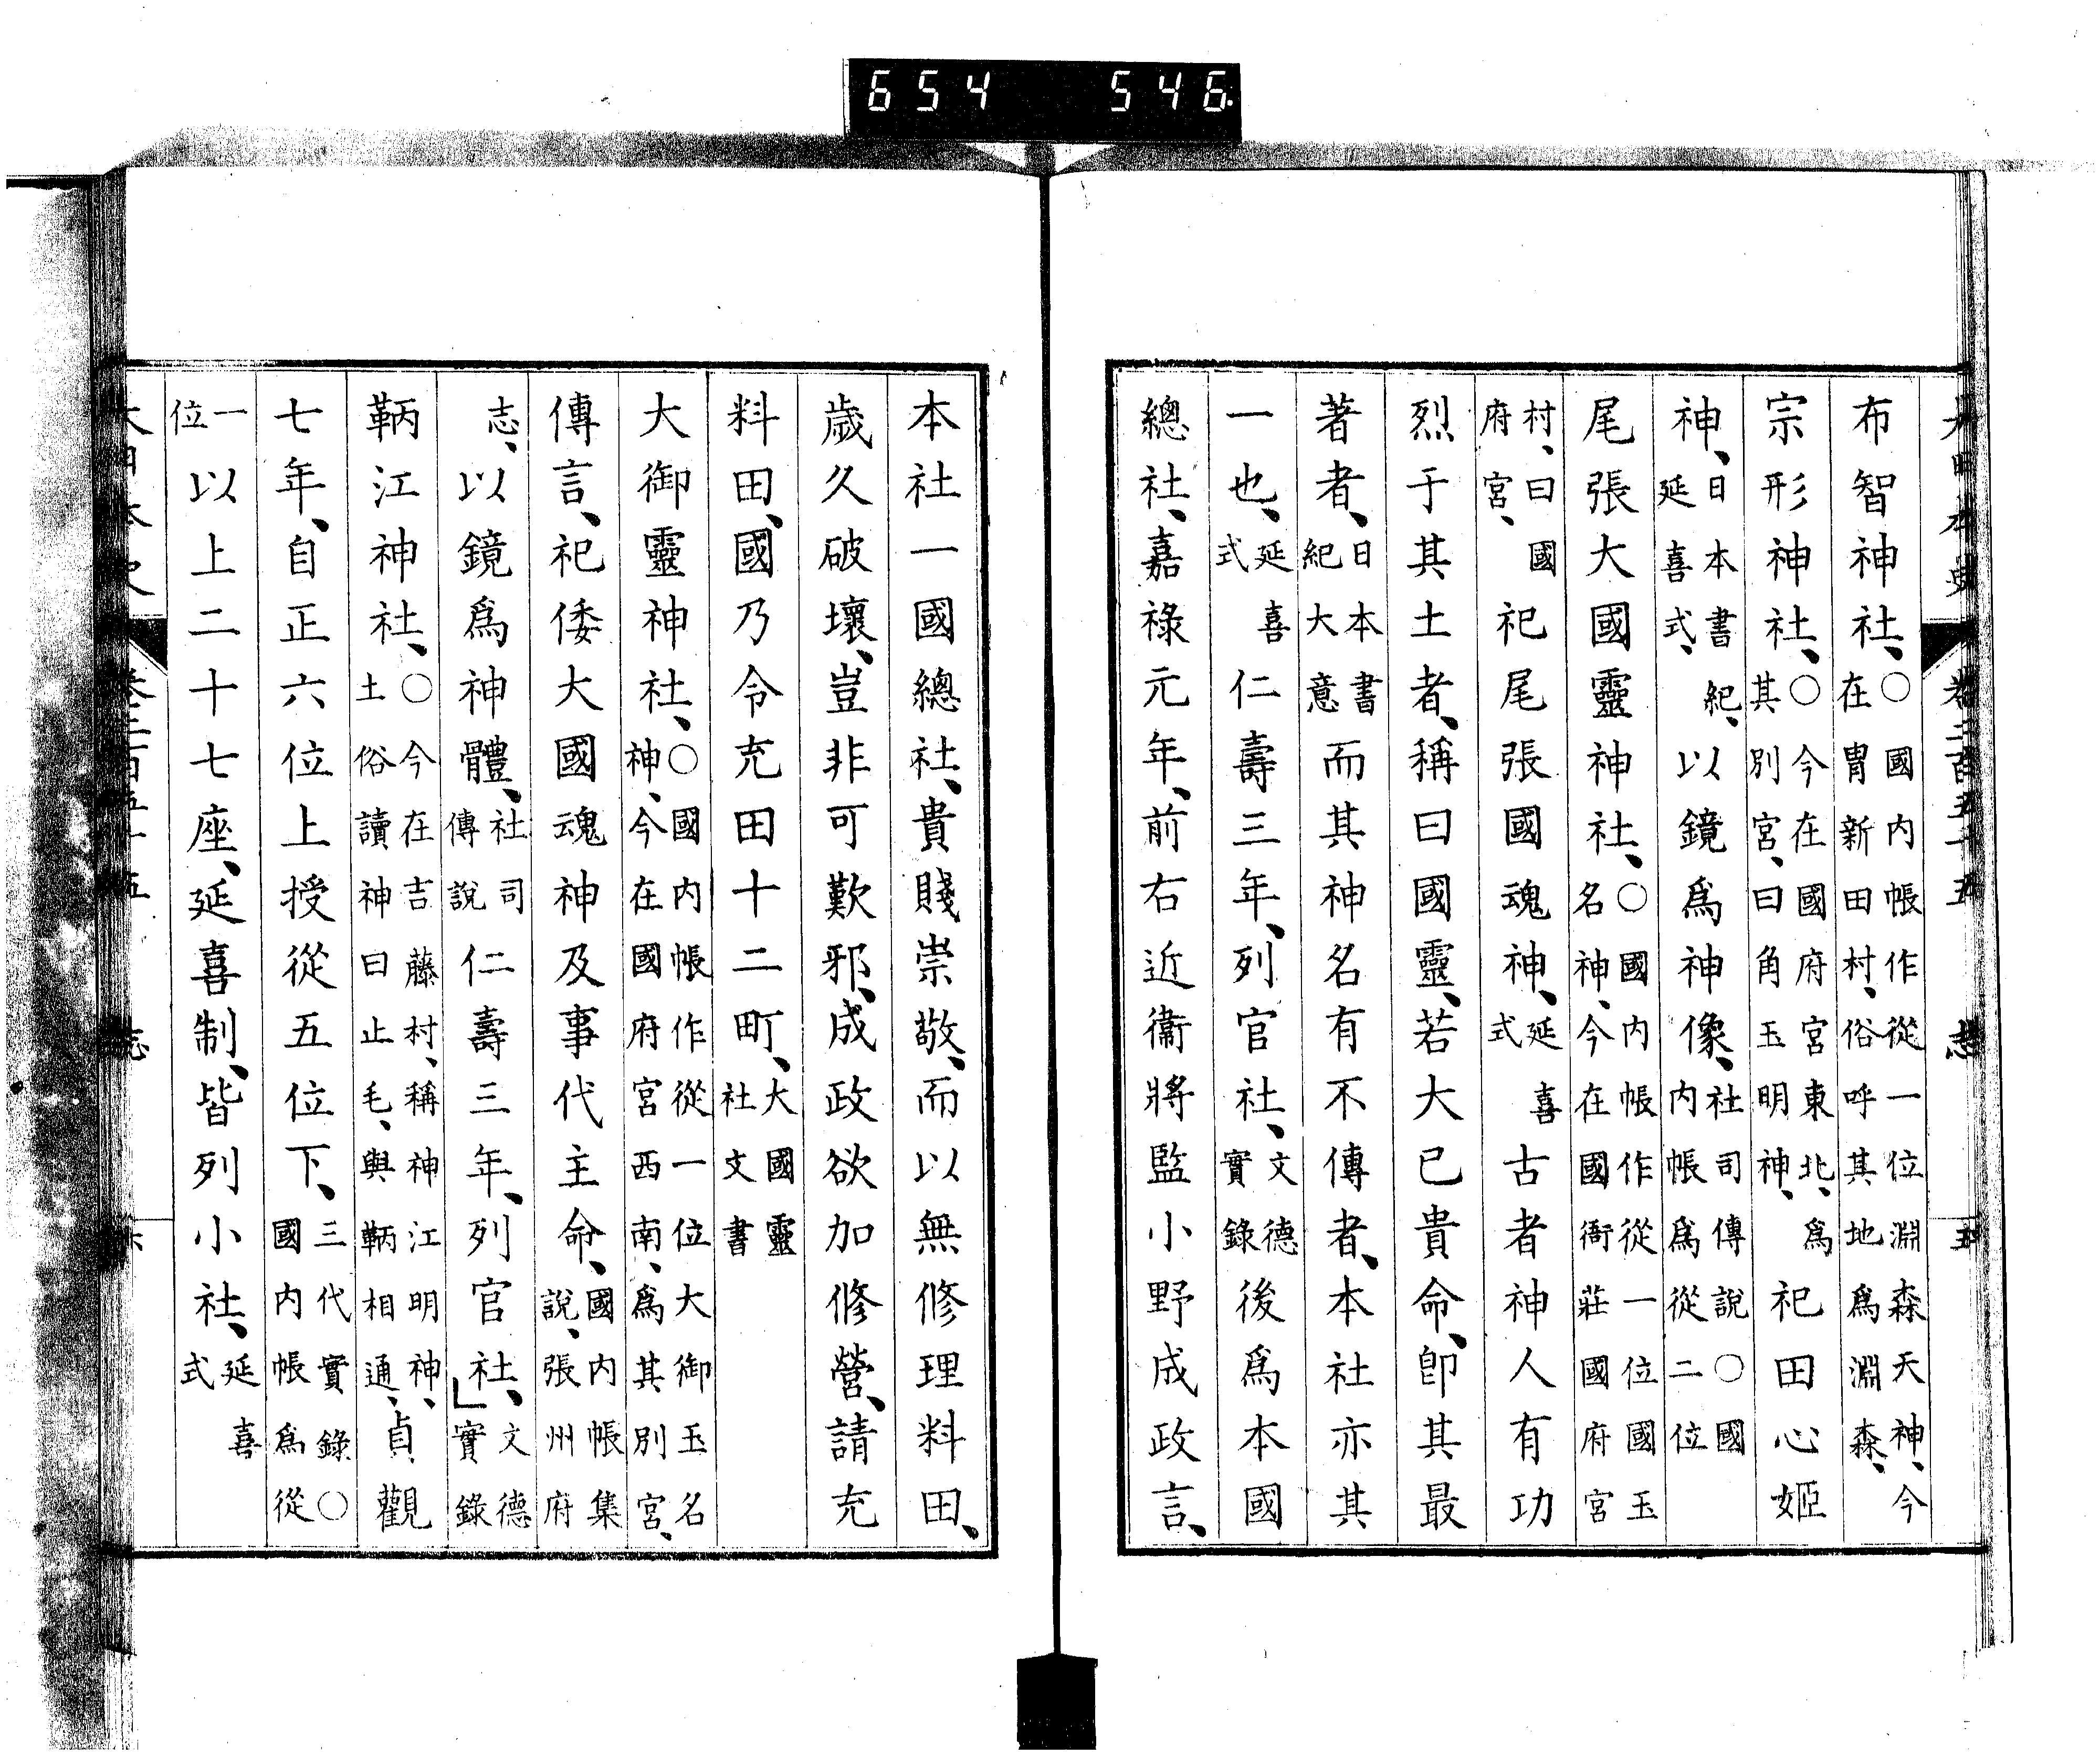 654 546
大日本史 卷二百五十五 志 五
布智神社、○國内帳作從一位淵森天神、今在胄新田村、俗呼其地爲淵森、
宗形神社、○今在國府宮東北、爲其別宮、曰角玉明神、祀田心姬
神、日本書紀、延喜式、以鏡爲神像、社司傳說○國内帳爲從二位
尾張大國靈神社、○國内帳作從一位國玉名神、今在國衙莊國府宮
村、曰國府宮、祀尾張國魂神、延喜式古者神人有功
烈于其土者、稱曰國靈、若大已貴命、卽其最
著者、日本書紀大意而其神名有不傳者、本社亦其
一也、延喜式仁壽三年、列官社、文德實錄後爲本國
總社、嘉祿元年、前右近衞將監小野成政言、
本社一國總社、貴賤崇敬、而以無修理料田、
歲久破壞、豈非可歎邪、成政欲加修營、請充
料田、國乃令充田十二町、大國靈社文書
大御靈神社、○國内帳作從一位大御玉名神、今在國府宮西南、爲其別宮、
傳言、祀倭大國魂神及事代主命、國内帳集說、張州府
志、以鏡爲神體、社司傳說仁壽三年、列官社、」文德實錄
鞆江神社、○今在吉藤村、稱神江明神、土俗讀神曰止毛、與鞆相通、貞觀
七年、自正六位上授從五位下、三代實錄○國内帳爲從
一位以上二十七座、延喜制、皆列小社、延喜式
大日本史 卷二百五十五 志 六